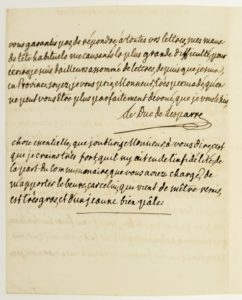 vous garantis pas de répondre à toutes vos lettres, mes maux
de tête habituels me causants la plus grande difficulté, pour
écrire, je suis d'ailleurs assommé de lettres, depuis que je suis
en Province, soyez, je vous prie, Monsieur, très persuadé qu'on
ne peut vous être plus parfaitement dévoué, que je vous le suis
le Duc de Lesparre
chose essentielle, que j'oubliois Monsieur, à vous dire, c'est
que je crains très fort qu'il n'y ait eu de l'infidélité, de
la part du commissionaire que vous aviez chargé, de
m'apporter le beure, car celui, qui vient de m'être remis,
est très gros, et d'un jaune bien pâle